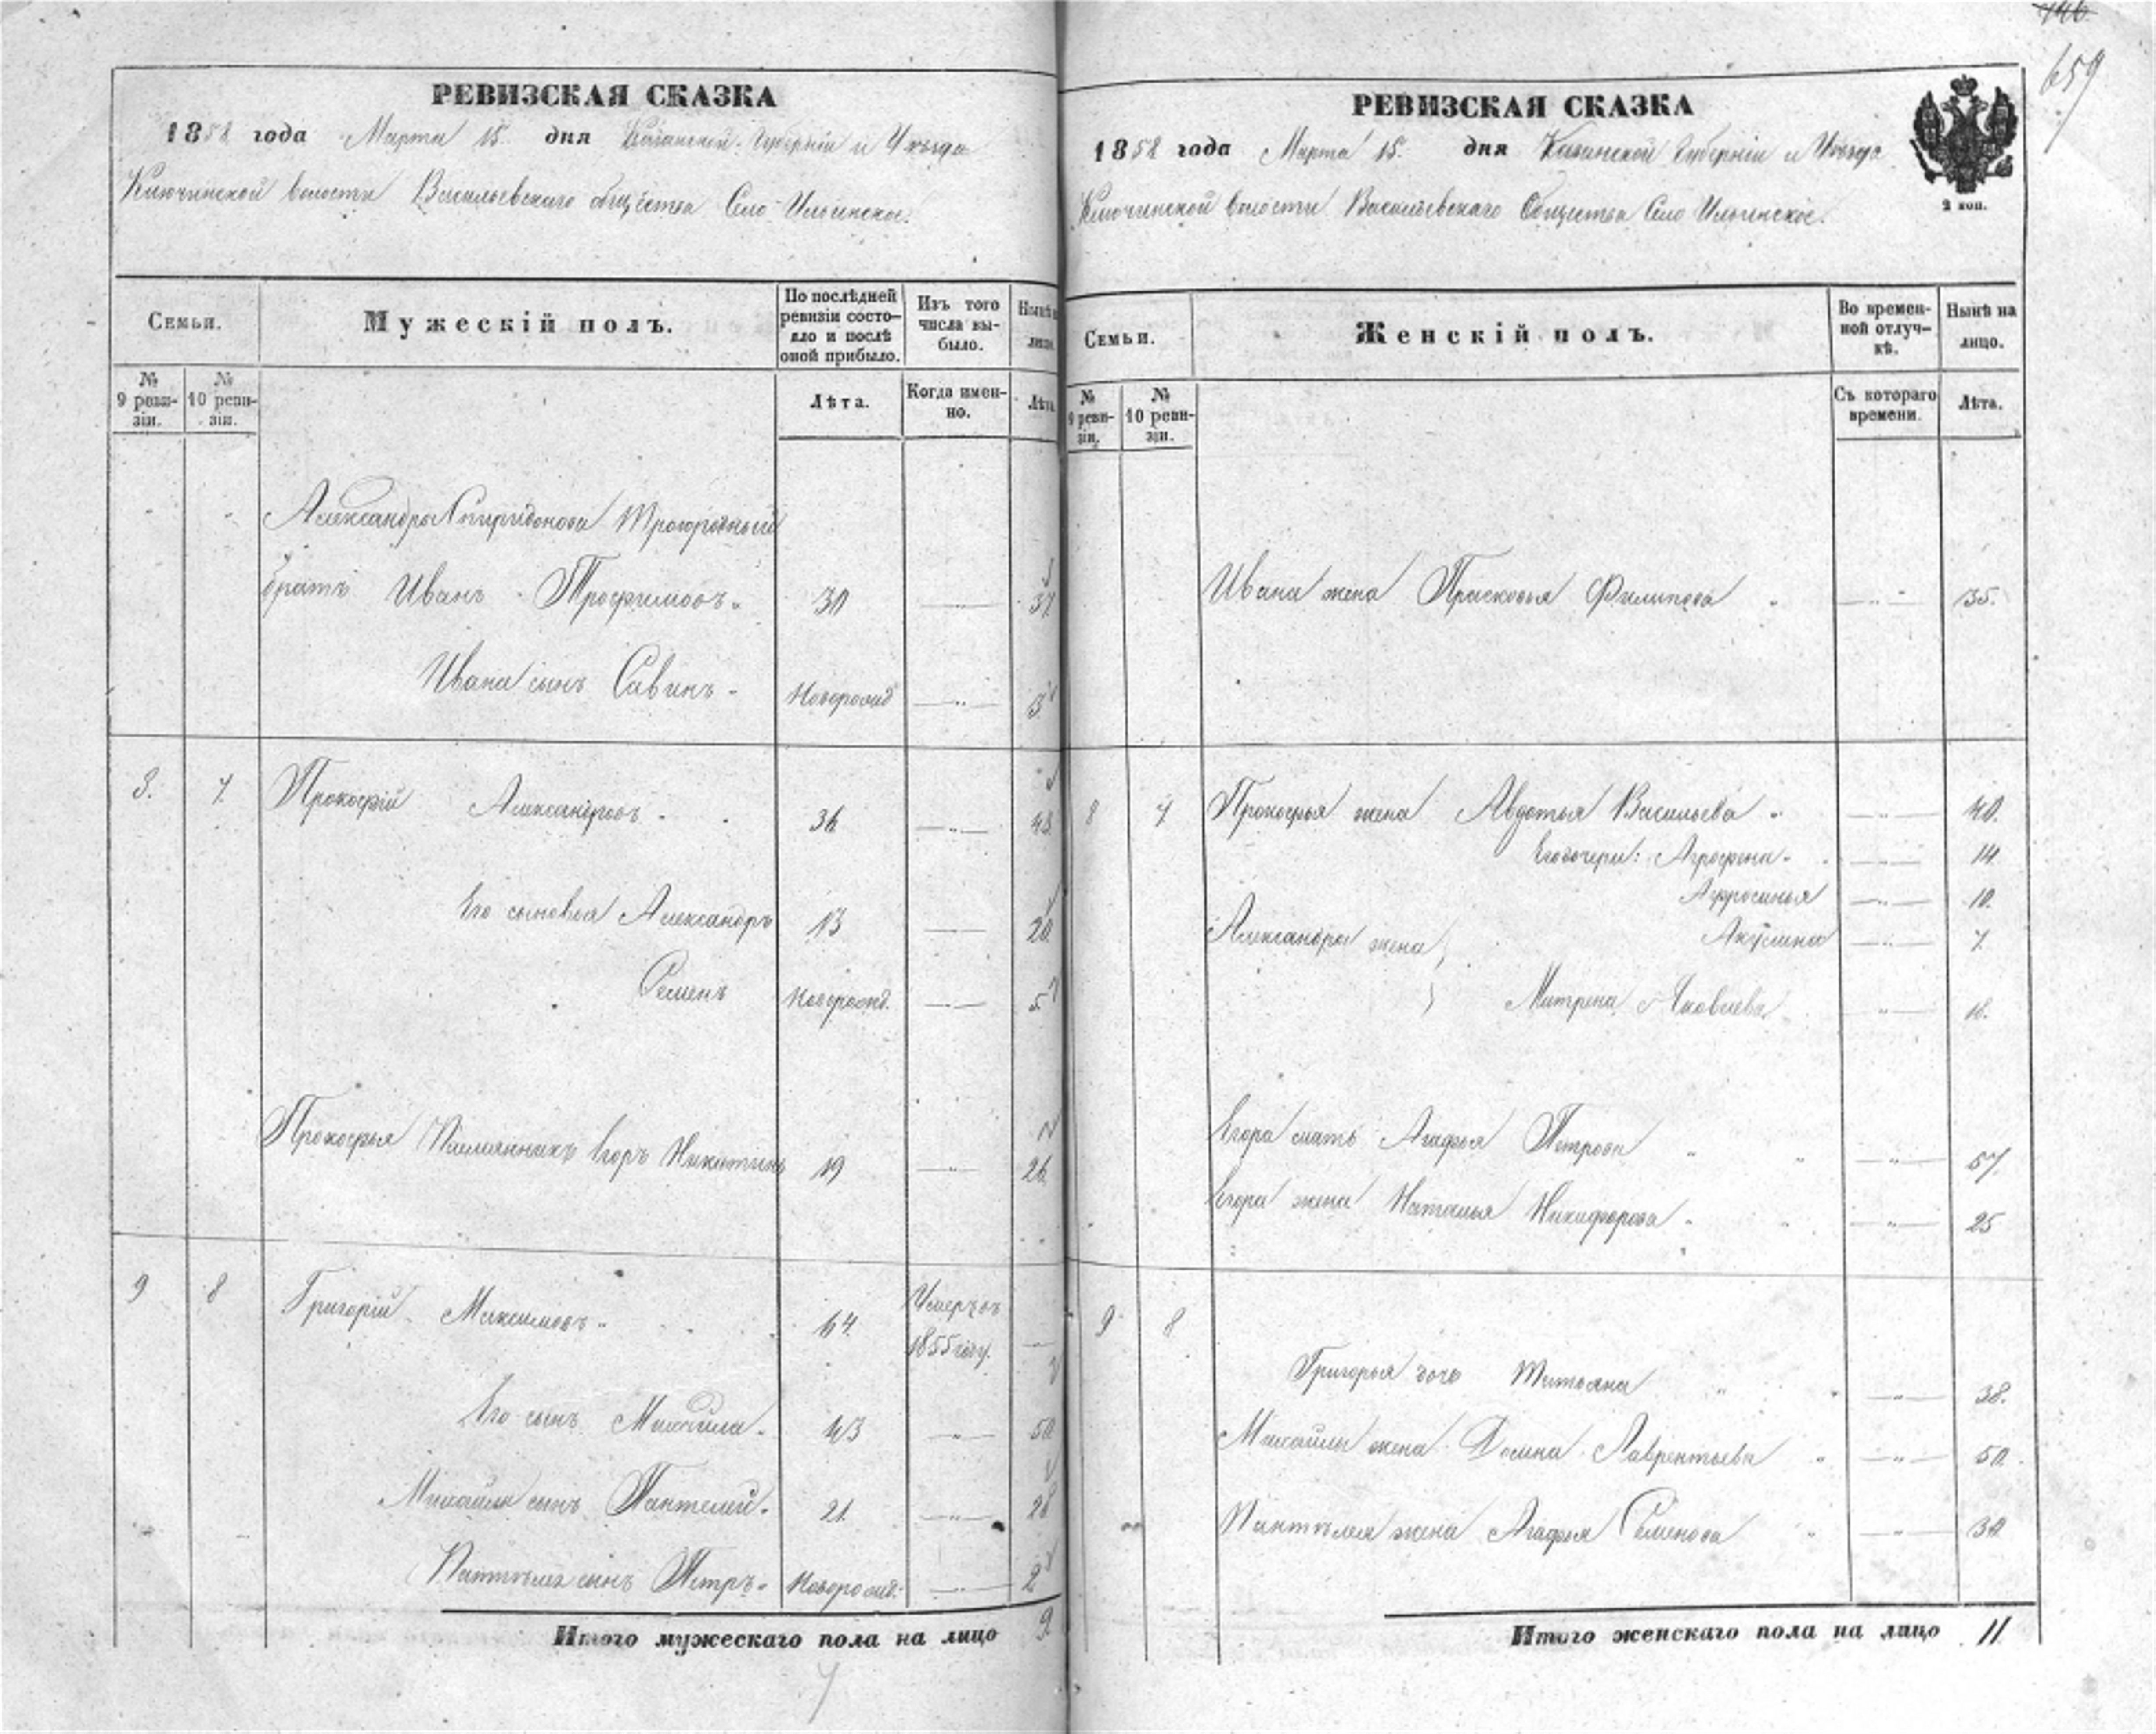 146.
659
РЕВИЗСКАЯ СКАЗКА
1858 года Марта 15. дня Казанской Губерніи и Уѣзда
Ключинской волости Васильевскаго общества Село Ильинское.
Семьи.
Мужескій полъ.
По послѣдней ревизіи состо-
яло и послѣ оной прибыло.
Изъ того числа вы-
было.
Нынѣ на лицо.
№ 9 реви-
зіи.
№ 10 реви-
зіи.
Лѣта.
Когда имен-
но.
Лѣта.
Александра Спиридонова Троюродный
братъ Иванъ Трофимовъ 30 37.
Ивана сынъ Савинъ Новорожд 3
8. 7. Прокофій Александровъ 36 43.
Его сыновья Александръ 13 20.
Семенъ Новорожд. 5
Прокофья Племянникъ Егоръ Никитинъ 19 26.
9 8 Григорій Максимовъ 64. Умеръ въ
1855 году.
Его сынъ Михайла 43 50
Михайлы сынъ Пантелей 21. 28
Пантелея сынъ Петръ Новорожд. 2
Итого мужескаго пола на лицо 9
РЕВИЗСКАЯ СКАЗКА
1858 года Марта 15. дня Казанской Губерніи и Уѣзда
Ключинской волости Васильевскаго Общества Село Ильинское.
2 коп.
Семьи.
Женскій полъ.
Во времен-
ной отлуч-
кѣ.
Нынѣ на
лицо.
№ 9 реви-
зіи.
№ 10 реви-
зіи.
Съ котораго
времени.
Лѣта.
Ивана жена Прасковья Филипова 35.
8 7 Прокофья жена Авдотья Васильева 40.
Его дочери: Агрофена 14
Афросинья 10.
Александра жена Акулина 7.
Матрена Яковлева 18.
Егора мать Агафья Петрова 57.
Егора жена Наталья Никифорова 25
9 8
Григорья дочь Татьяна 38.
Михайлы жена Домна Лаврентьева 50.
Пантелея жена Агафья Семенова 30
Итого женскаго пола на лицо 11